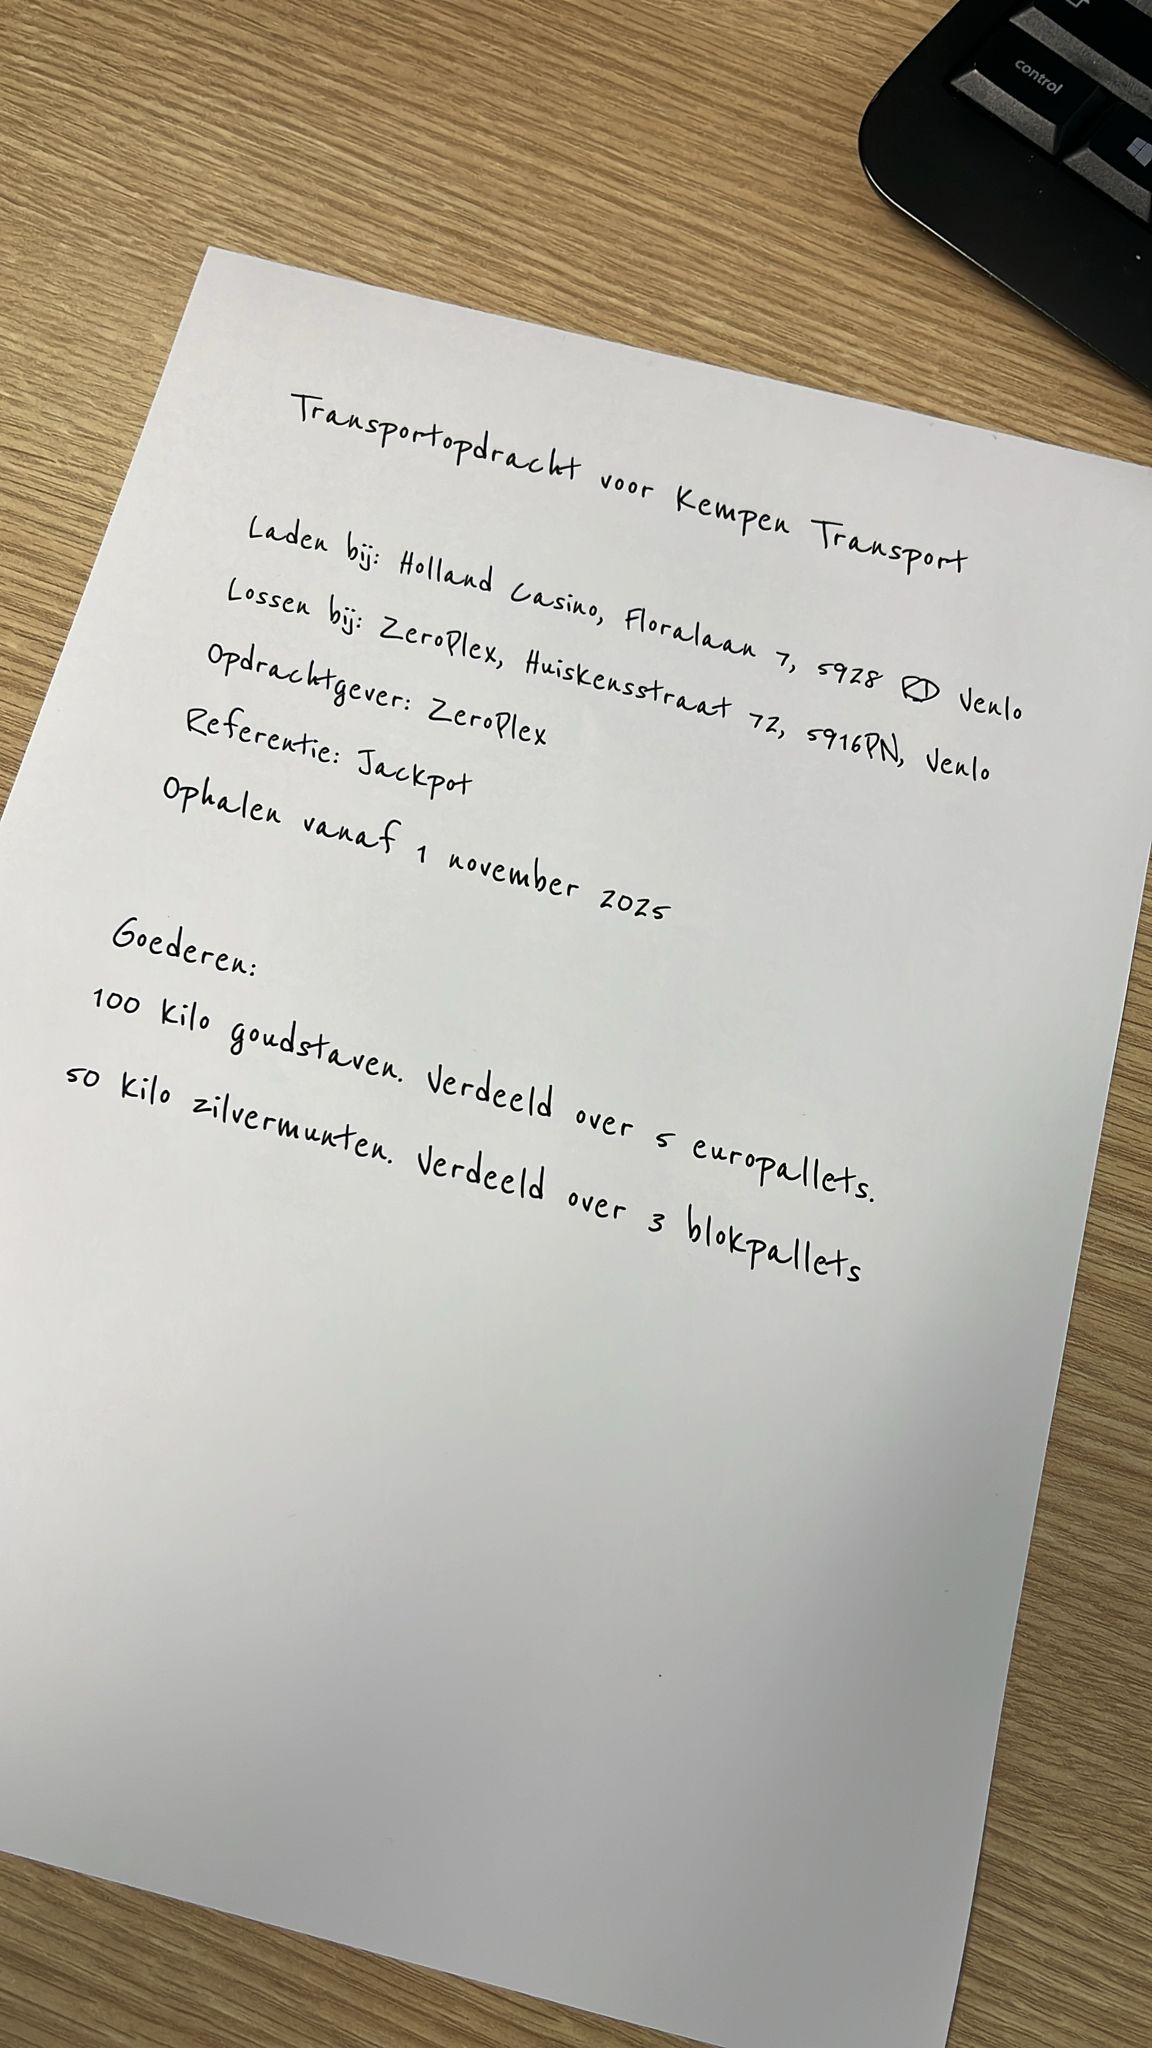 control
Transportopdracht voor Kempen Transport
Laden bij: Holland Casino, Floralaan 7, 5928 RD Venlo
Lossen bij: ZeroPlex, Huiskensstraat 72, 5916PN, Venlo
Opdrachtgever: ZeroPlex
Referentie: Jackpot
Ophalen vanaf 1 november 2025
Goederen:
100 kilo goudstaven. Verdeeld over 5 europallets.
50 kilo zilvermunten. Verdeeld over 3 blokpallets